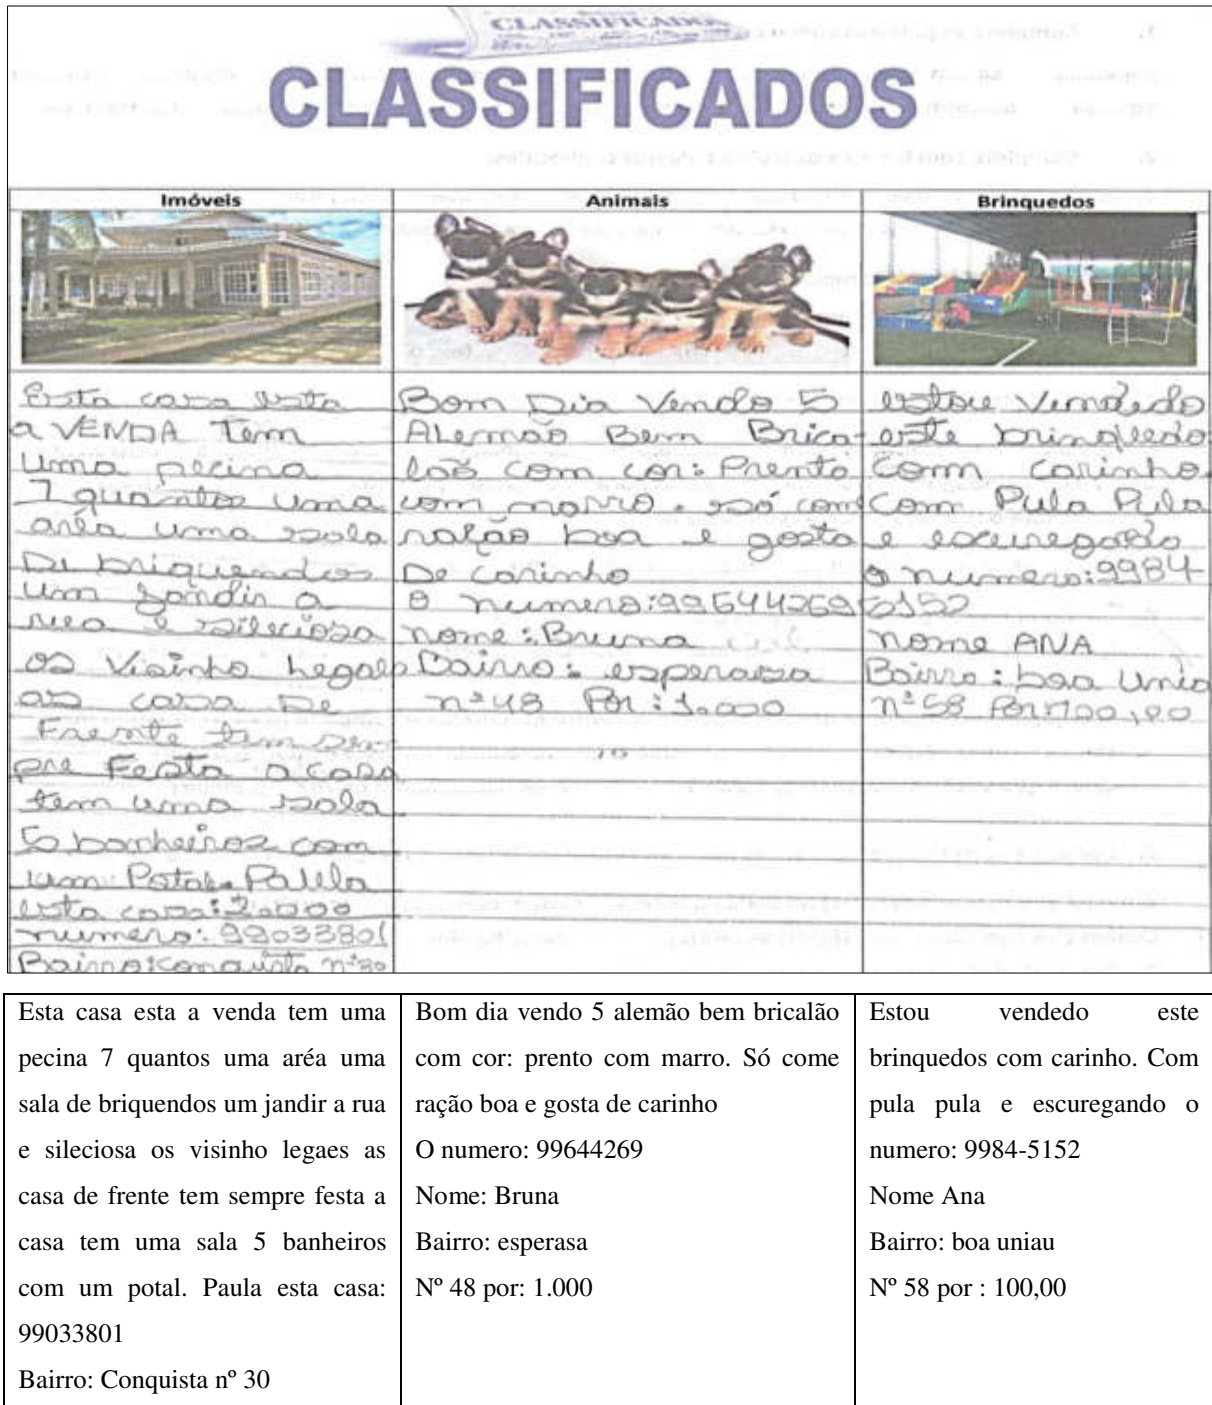 CLASSIFICADOS
CLASSIFICADOS
Imóveis
Esta casa esta
a VENDA Tem
uma pecina
7 quantos uma
aréa uma sala
De briquendos
um jandir a
rua e sileciosa
os Visinho legaes
as casa De
Frente tem sem
pre Festa a casa
tem uma sala
5 banheiros com
um Potal. Paula
esta casa: 2.000
numero: 99033801
Bairro: Conquista nº 30
Animais
Bom Dia Vendo 5
ALemão Bem Brica-
lão com cor: Prento
com marro. só come
ração boa e gosta
De carinho
O numero: 996442695
nome: Bruna
Bairro: esperasa
nº 48 Por: 1.000
Brinquedos
estou Vendedo
este brinquedo
com carinho.
Com Pula Pula
e escuregando
o numero: 9984-
5152
nome ANA
Bairro: boa Unia
nº 58 Por: 100,00
Esta casa esta a venda tem uma
pecina 7 quantos uma aréa uma
sala de briquendos um jandir a rua
e sileciosa os visinho legaes as
casa de frente tem sempre festa a
casa tem uma sala 5 banheiros
com um potal. Paula esta casa:
99033801
Bairro: Conquista nº 30
Bom dia vendo 5 alemão bem bricalão
com cor: prento com marro. Só come
ração boa e gosta de carinho
O numero: 99644269
Nome: Bruna
Bairro: esperasa
Nº 48 por: 1.000
Estou vendedo este
brinquedos com carinho. Com
pula pula e escuregando o
numero: 9984-5152
Nome Ana
Bairro: boa uniau
Nº 58 por : 100,00